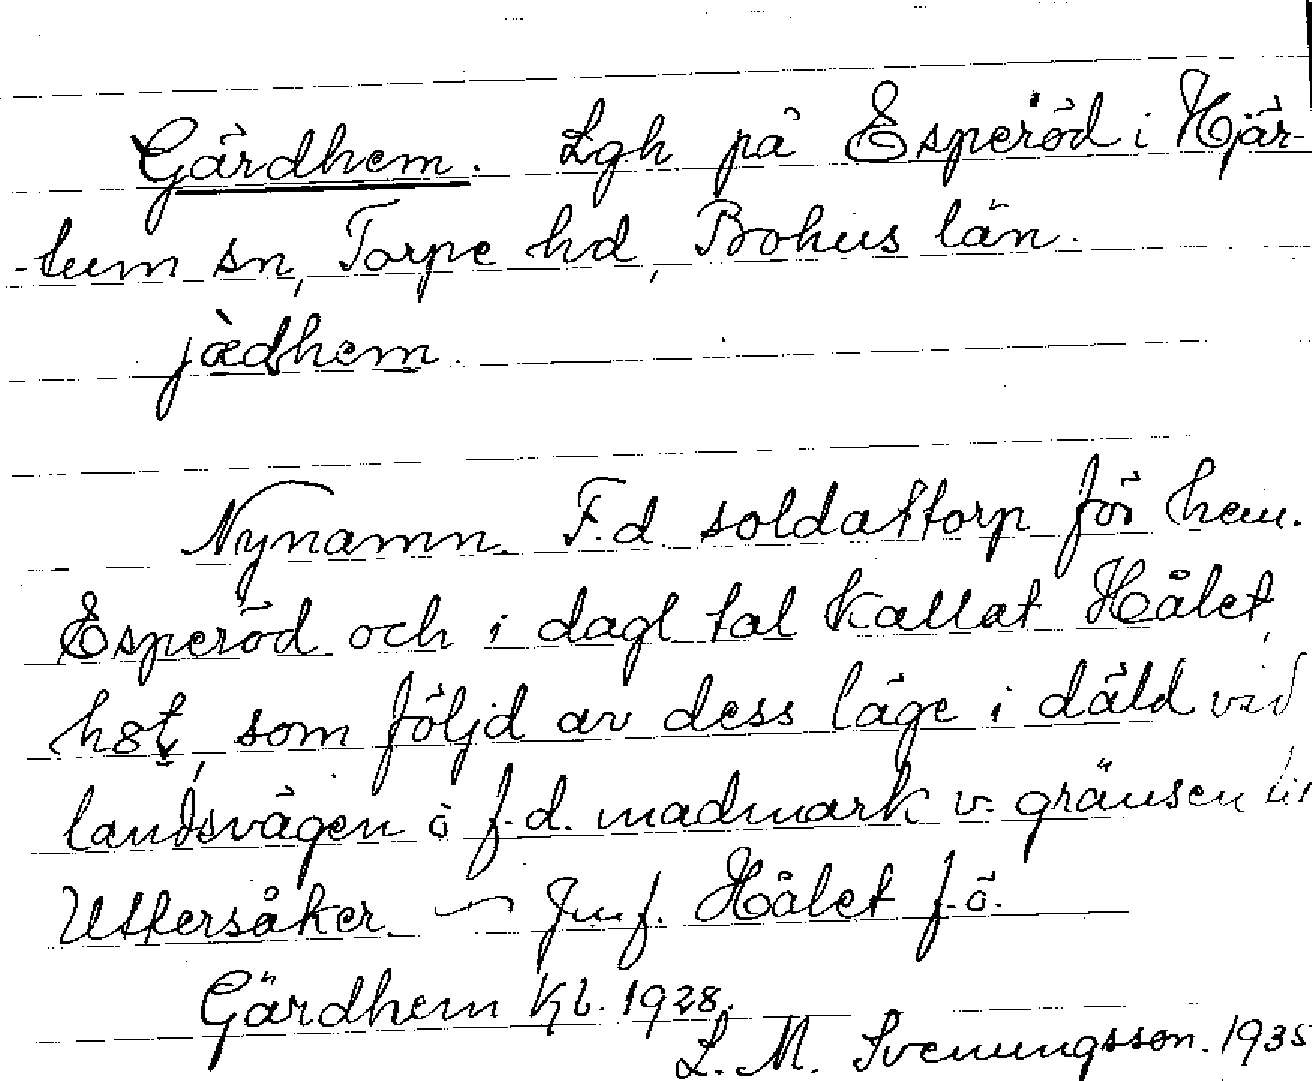 Gärdhem. Lgh på Esperöd i Hjär-
-tum sn, Torpe hd, Bohus län.
jæ̀dhem.
Nynamn. F.d. soldattorp för hem.
Esperöd och i dagl tal kallat Hålet,
h8t, som följd av dess läge i däld vid
landsvägen å f.d. madmark v. gränsen till
Uttersåker — Jmf. Hålet f.ö.
Gärdhem Kb. 1928.
L. M. Svenungsson. 1935